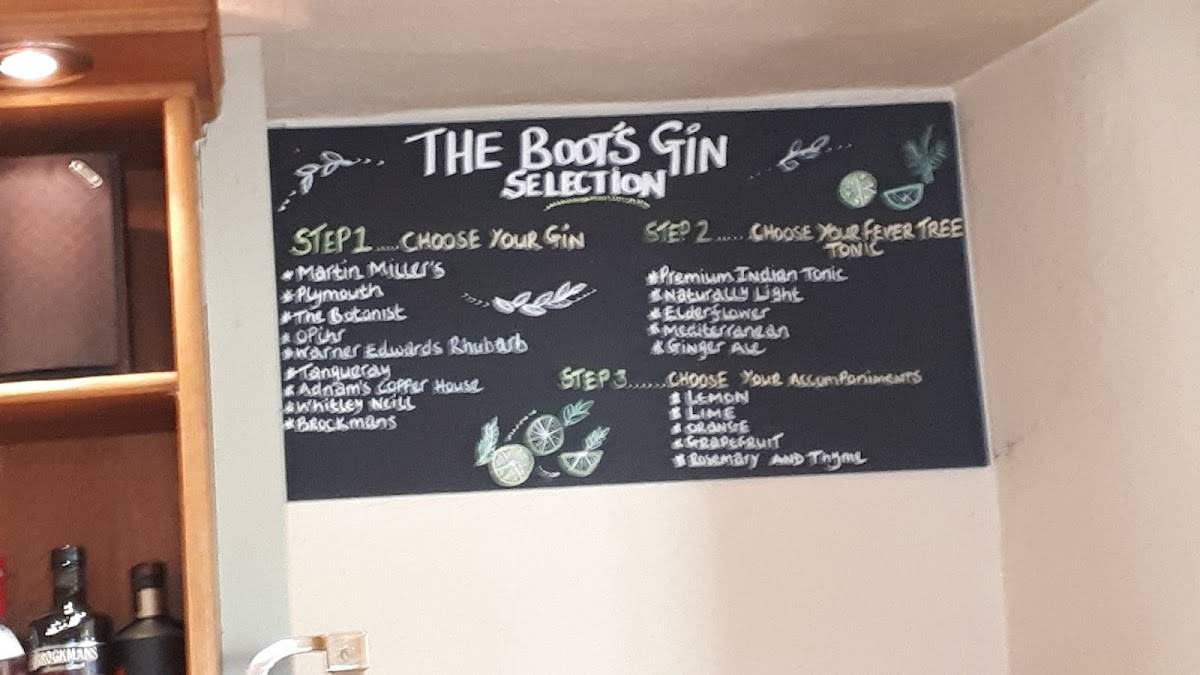 THE BOOT'S GIN
SELECTION
STEP 1 ..... CHOOSE YOUR GIN
* Martin Miller's
* Plymouth
* The Botanist
* Opihr
* Warner Edwards Rhubarb
* Tanqueray
* Adnam's Copper House
* Whitley Neill
* Brockmans
STEP 2 ...... CHOOSE YOUR FEVER TREE
TONIC
* Premium Indian Tonic
* Naturally Light
* Elderflower
* Mediterranean
* Ginger Ale
STEP 3 ....... CHOOSE YOUR ACCOMPANIMENTS
* LEMON
* LIME
* ORANGE
* GRAPEFRUIT
* Rosemary AND Thyme
BROCKMANS